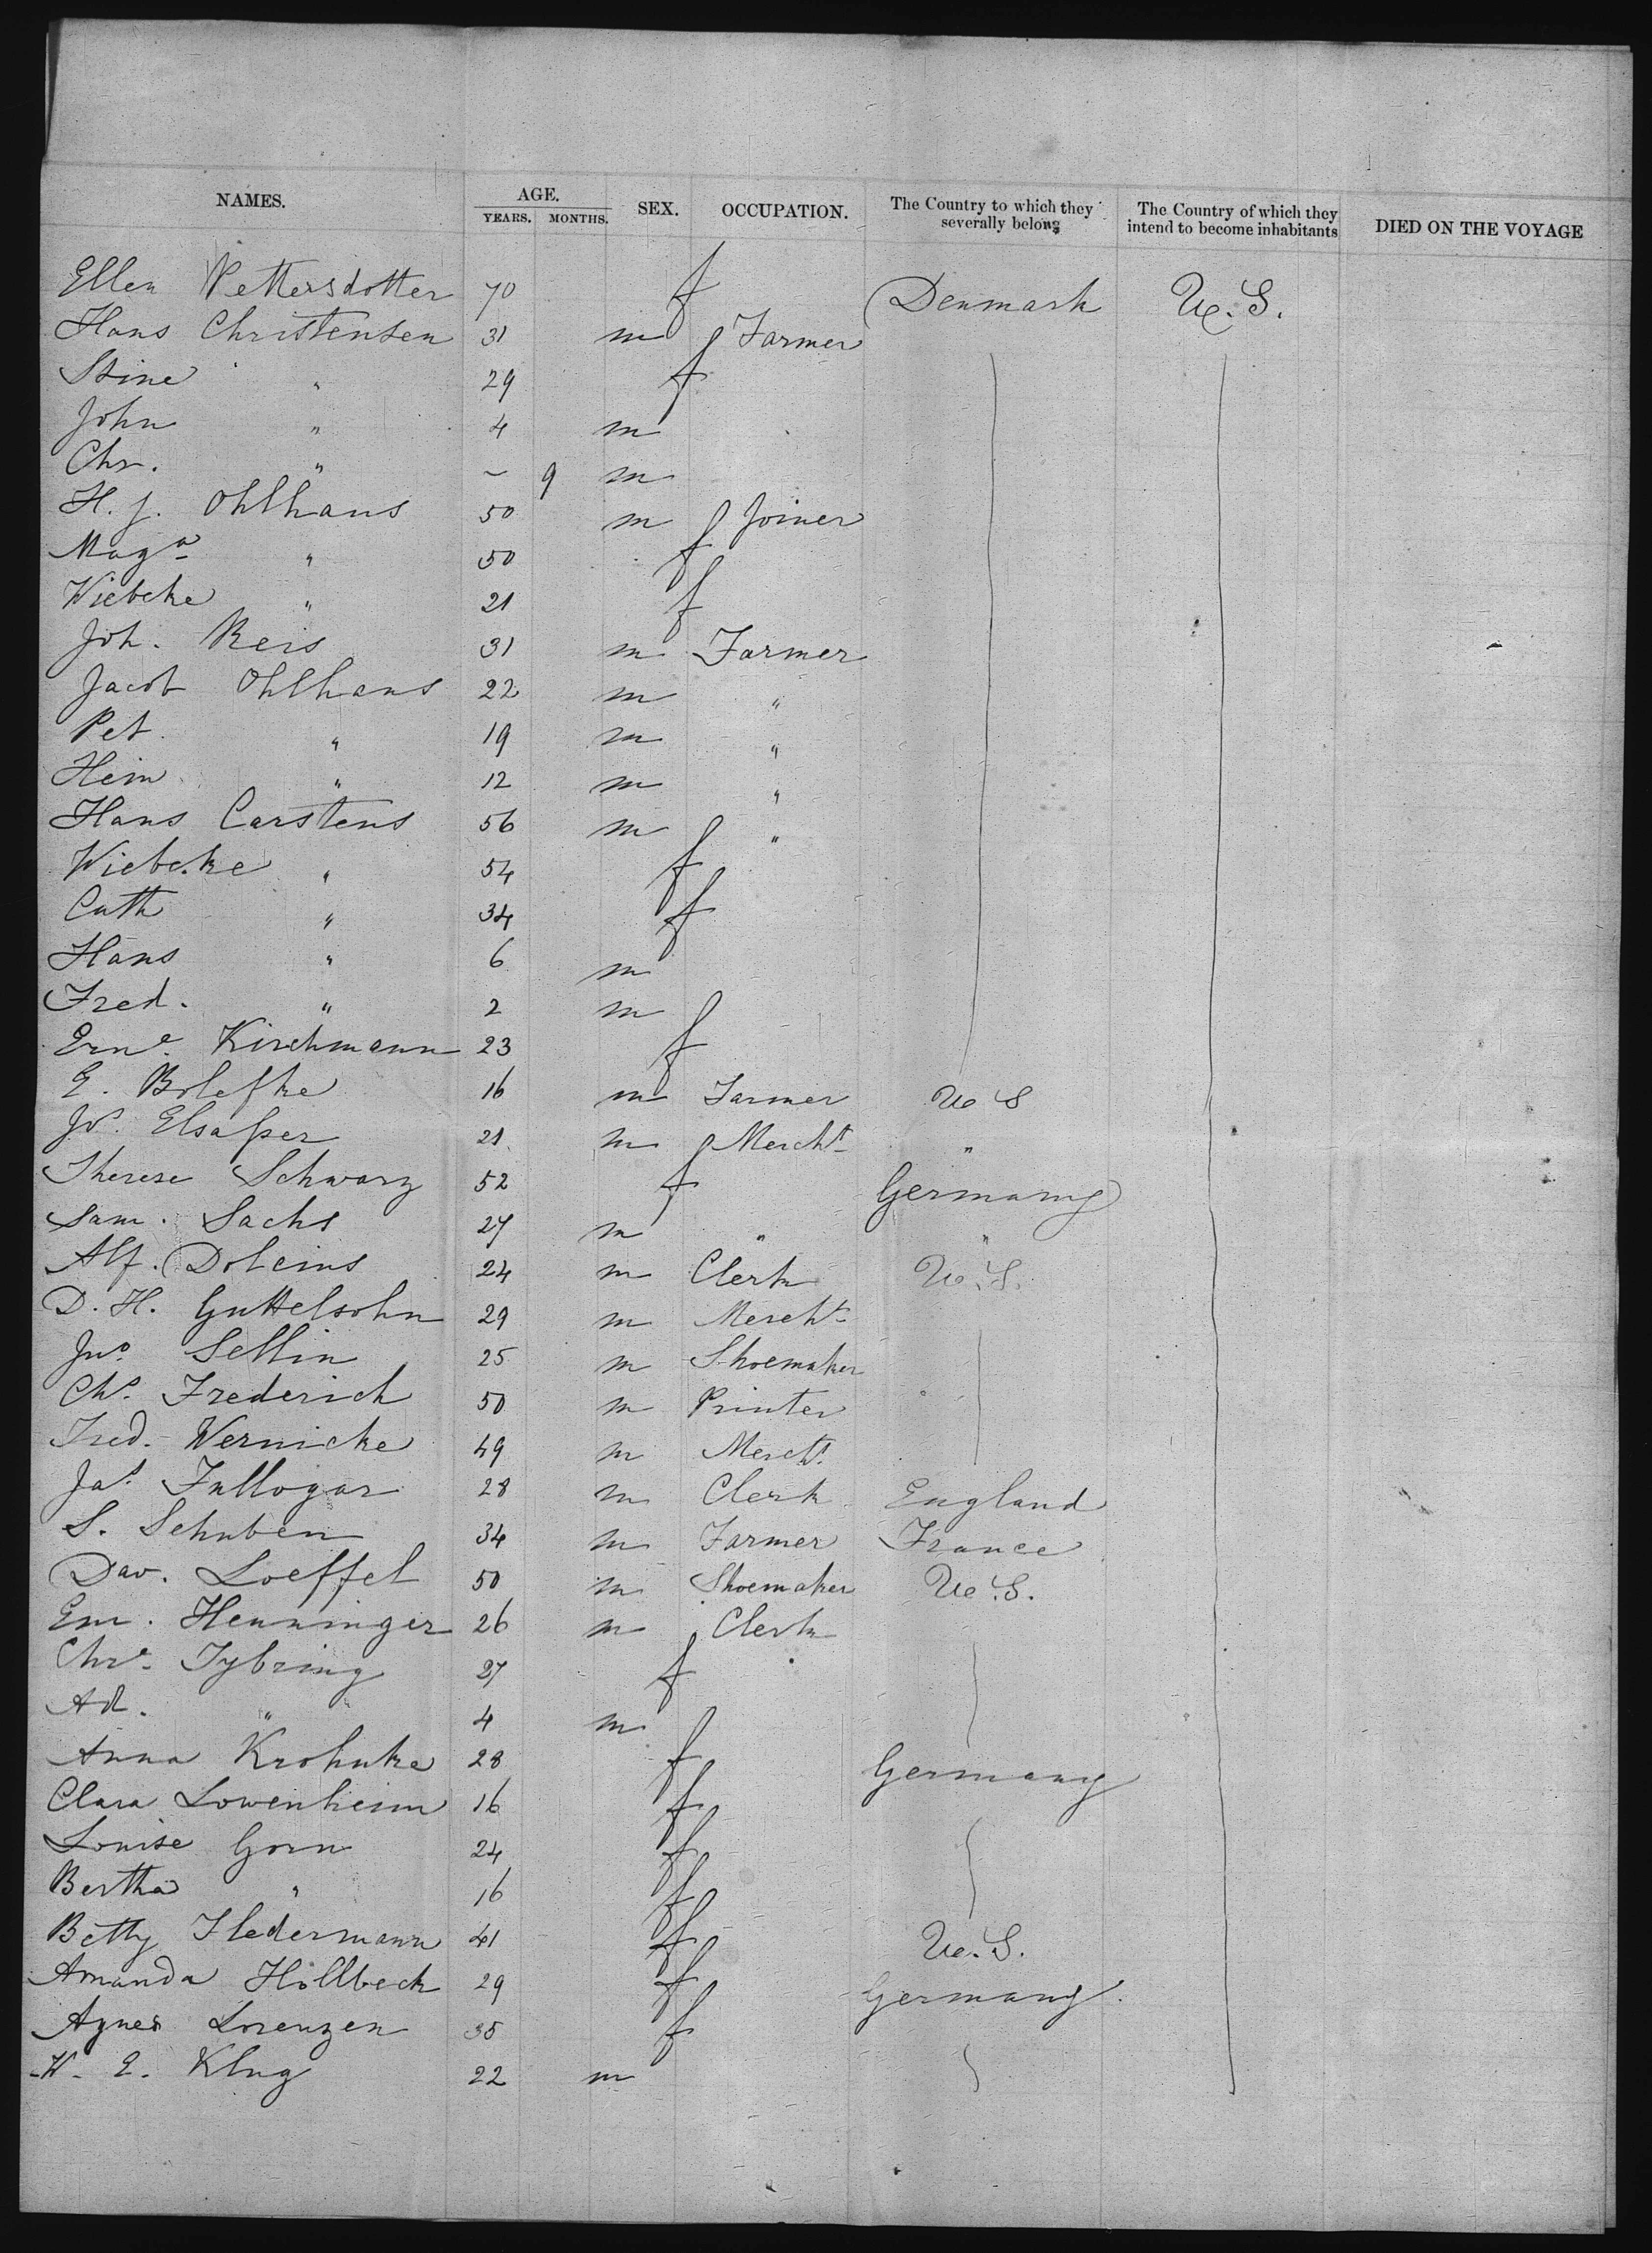 NAMES. AGE. SEX. OCCUPATION. The Country to which they severally belong The Country of which they intend to become inhabitants DIED ON THE VOYAGE
YEARS. MONTHS.
Ellen Pettersdotter 70 f Denmark U.S.
Hans Christensen 31 m Farmer
Stine " 29 f
John " 4 m
Chr. " ~ 9 m
H. J. Ohlhans 50 m Joiner
Maga " 50 f
Wiebcke " 21 f
Joh. Reis 31 m Farmer
Jacob Ohlhans 22 m "
Pet. " 19 m "
Hein " 12 m "
Hans Carstens 56 m "
Wiebcke " 54 f
Cath " 34 f
Hans " 6 m
Fred. " 2 m
Erne. Kirchmann 23 f
E. Bolefke 16 m Farmer U S
Jo. Elsaſser 21 m Mercht "
Therese Schwarz 52 f Germany
Sam. Sachs 27 m " "
Alf. Doleins 24 m Clerk U.S.
D. H. Guttelsohn 29 m Mercht
Jno. Sellin 25 m Shoemaker
Chs. Frederich 50 m Printer
Fred. Wernicke 49 m Mercht.
Jas. Fullogar 28 m Clerk England
S. Schuben 34 m Farmer France
Dav. Loeffel 50 m Shoemaker U.S.
Em. Henninger 26 m Clerk
Chre. Tybring 27 f
Ad. " 4 m
Anna Krohnke 28 f Germany
Clara Lowenheim 16 f
Louise Gorn 24 f
Bertha " 16 f
Betty Fledermann 41 f U.S.
Amanda Hollbeck 29 f Germany.
Agnes Lorenzen 35 f
W. E. Klug 22 m